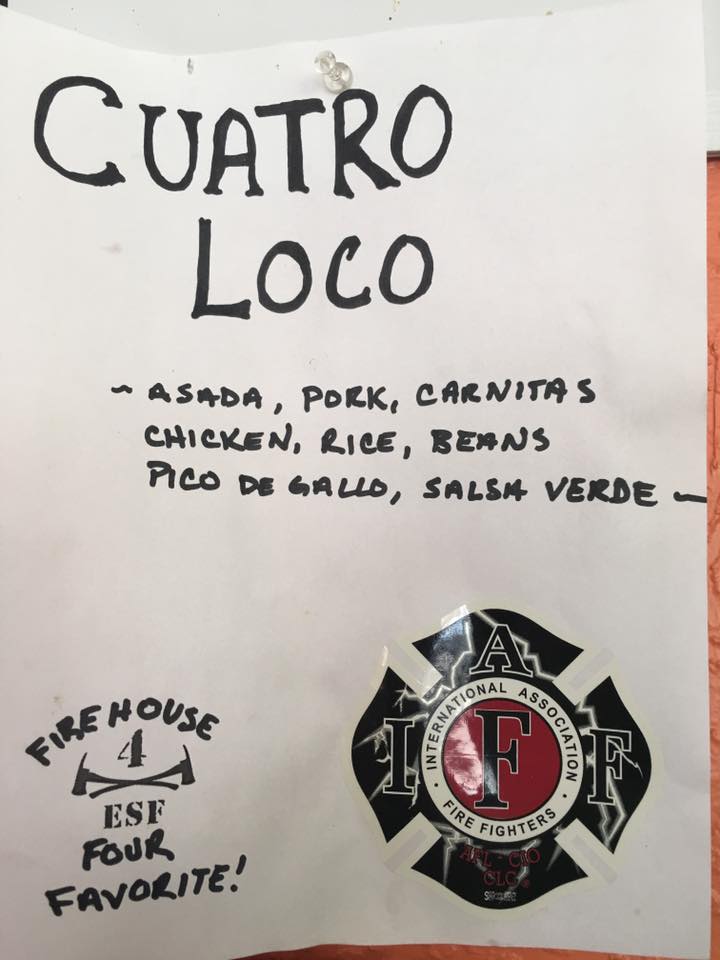 CUATRO
LOCO
~ ASADA, PORK, CARNITAS
CHICKEN, RICE, BEANS
PICO DE GALLO, SALSA VERDE ~
FIREHOUSE
4
ESF
FOUR
FAVORITE!
A
I F F
INTERNATIONAL ASSOCIATION
F
• FIRE FIGHTERS •
AFL - CIO
CLC